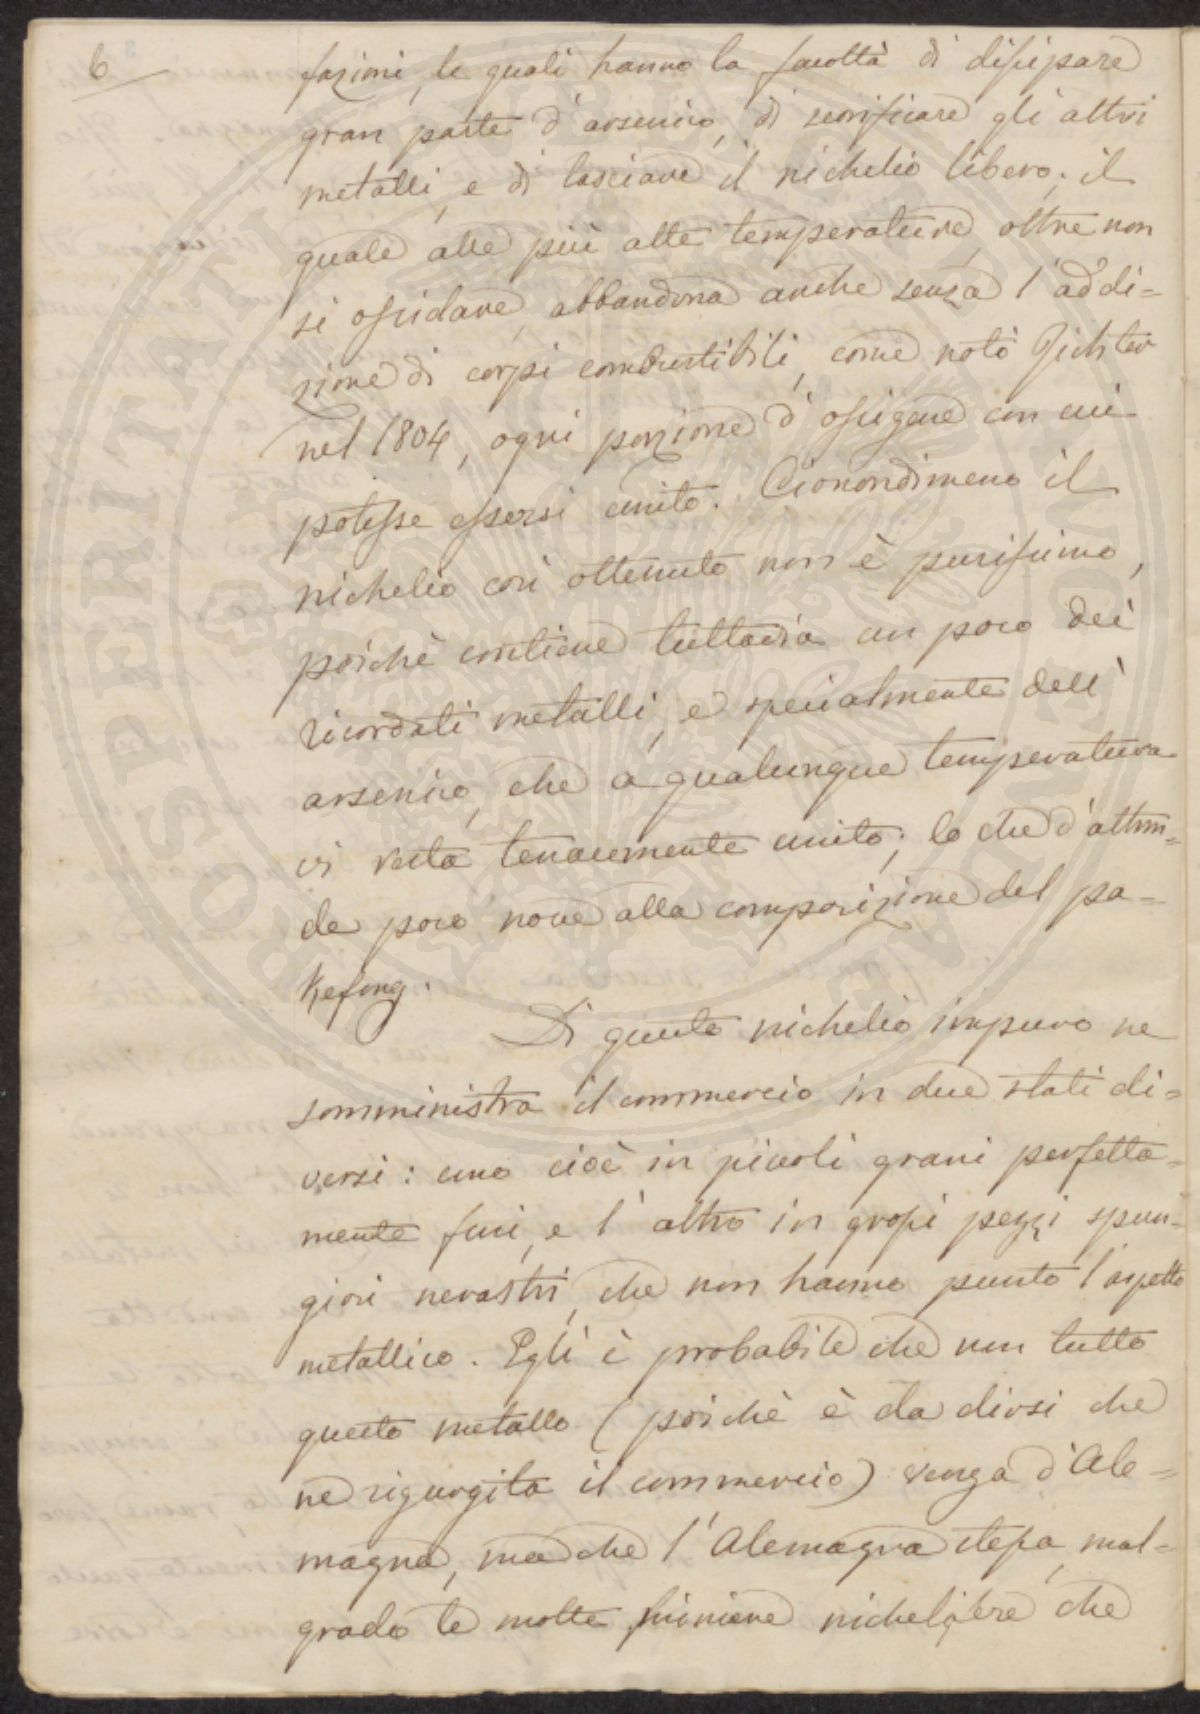 6
fazioni, le quali hanno la facoltà di dissipare
gran parte d'arsenico, di scorificare gli altri
metalli, e di lasciare il nichelio libero; il
quale alle più alte temperature, oltre non
si ossidare, abbandona anche senza l'addi=
zione di corpi combustibili, come notò Richter
nel 1804, ogni porzione d'ossigene con cui
potesse essersi unito. Ciònondimeno il
nichelio così ottenuto non è purissimo,
poichè contiene tuttavia un poco dei
ricordati metalli, e specialmente dell'
arsenico, che a qualunque temperatura
vi resta tenacemente unito; lo che d'altron=
de poco nuoce alla composizione del pa=
kefong.
Di questo nichelio impuro ne
somministra il commercio in due stati di=
versi: uno cioè in piccoli grani perfetta=
mente fusi, e l'altro in grossi pezzi spun=
giosi nerastri, che non hanno punto l'aspetto
metallico. Egli è probabile che non tutto
questo metallo (poichè è da dirsi che
ne rigurgita il commercio) venga d'Ale=
magna, ma che l'Alemagna stessa, mal=
grado le molte miniere nichelifere che
PROSPERITATI